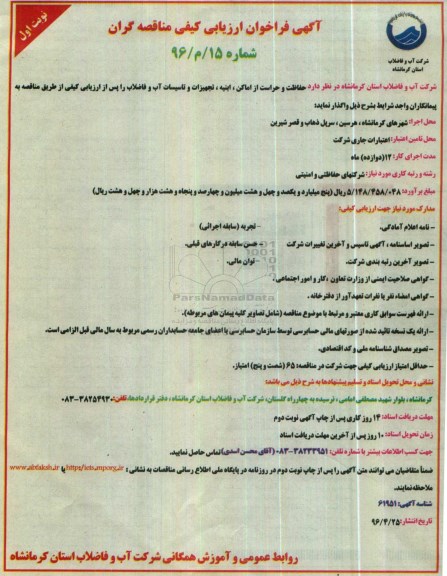 نوبت اول
شرکت آب و فاضلاب
استان کرمانشاه
آگهی فراخوان ارزیابی کیفی مناقصه گران
شماره ۱۵/م/۹۶
شرکت آب و فاضلاب استان کرمانشاه در نظر دارد حفاظت و حراست از اماکن ، ابنیه ، تجهیزات و تاسیسات آب و فاضلاب را پس از ارزیابی کیفی از طریق مناقصه به
پیمانکاران واجد شرایط بشرح ذیل واگذار نماید:
محل اجرا: شهرهای کرمانشاه ، هرسین ، سرپل ذهاب و قصر شیرین
محل تامین اعتبار: اعتبارات جاری شرکت
مدت اجرای کار: ۱۲(دوازده) ماه
رشته و رتبه کاری مورد نیاز: شرکتهای حفاظتی و امنیتی
مبلغ برآورد: ۵/۱۴۸/۴۵۸/۰۴۸ ریال (پنج میلیارد و یکصد و چهل و هشت میلیون و چهارصد و پنجاه و هشت هزار و چهل و هشت ریال)
مدارک مورد نیاز جهت ارزیابی کیفی:
- نامه اعلام آمادگی. - تجربه (سابقه اجرائی)
- تصویر اساسنامه ، آگهی تاسیس و آخرین تغییرات شرکت - حسن سابقه در کارهای قبلی.
- تصویر آخرین رتبه بندی شرکت. - توان مالی.
- گواهی صلاحیت ایمنی از وزارت تعاون ،کار و امور اجتماعی.
- گواهی امضاء نفر یا نفرات تعهدآور از دفترخانه .
- ارائه فهرست سوابق کاری معتبر و مرتبط با موضوع مناقصه (شامل تصاویر کلیه پیمان های مربوطه).
- ارائه یک نسخه تائید شده از صورتهای مالی حسابرسی توسط سازمان حسابرسی یا اعضای جامعه حسابداران رسمی مربوط به سال مالی قبل الزامی است.
- تصویر مصداق شناسنامه ملی و کد اقتصادی.
- حداقل امتیاز ارزیابی کیفی جهت شرکت در مناقصه: ۶۵ (شصت و پنج) امتیاز.
نشانی و محل تحویل اسناد و تسلیم پیشنهادها به شرح ذیل می باشد:
کرمانشاه ، بلوار شهید مصطفی امامی ، نرسیده به چهارراه گلستان، شرکت آب و فاضلاب استان کرمانشاه ، دفتر قراردادها، تلفن: ۳۸۲۵۴۹۳۰-۰۸۳
مهلت دریافت اسناد: ۱۴ روز کاری پس از چاپ آگهی نوبت دوم
زمان تحویل اسناد: ۱۰ روز پس از آخرین مهلت دریافت اسناد
جهت کسب اطلاعات بیشتر با شماره تلفن: ۳۸۲۳۳۹۵۱-۰۸۳ (آقای محسن اسدی) تماس حاصل نمایید.
ضمناً متقاضیان می توانند متن آگهی را پس از چاپ نوبت دوم در روزنامه در پایگاه ملی اطلاع رسانی مناقصات به نشانی : http://iets.mporg.ir یا www.abfaksh.ir
ملاحظه نمایند.
شناسه آگهی: ۶۱۹۵۱
تاریخ انتشار: ۹۶/۴/۲۵
روابط عمومی و آموزش همگانی شرکت آب و فاضلاب استان کرمانشاه
ParsNamadData